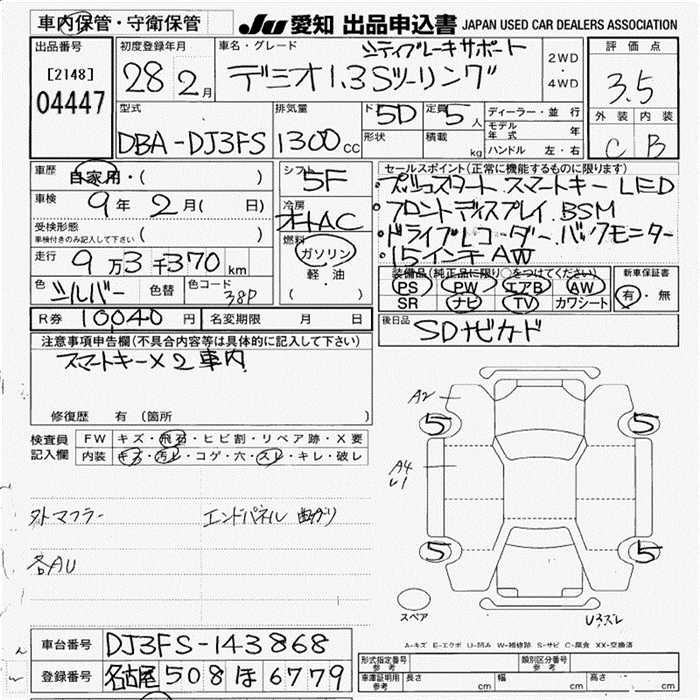 車内保管・守衛保管
JU 愛知 出品申込書 JAPAN USED CAR DEALERS ASSOCIATION
出品番号
[2148]
04447
初度登録年月
28 2月
車名・グレード
シティブレーキサポート
デミオ1.3Sツーリング
2WD
・
4WD
評価点
3.5
外装 内装
C B
型式
DBA-DJ3FS
排気量
1300cc
ド 5D
形状
定員 5人
積載 kg
ディーラー・並行
モデル年式 年
ハンドル 左・右
車歴
自家用・( )
車検
9年 2月( 日)
受検形態
車検付きのみ記入して下さい ( )
走行
9万3千370km
色 シルバー 色替 色コード 38P
シフト
5F
冷房
オートAC
燃料
ガソリン
軽・油
( )
セールスポイント(正常に機能するものに限ります)
・プッシュスタート スマートキー LED
・フロントディスプレイ. BSM
・ドライブレコーダー. バックモニター
・15インチAW
装備品(純正品に限り○をつけてください)
PS PW エアB AW
SR ナビ TV カワシート
新車保証書
有・無
R券 10040円 名変期限 月 日
後日品
SDナビカード
注意事項申告欄(不具合内容等は具体的に記入して下さい)
スマートキー×2 車内
修復歴 有(箇所 )
検査員
記入欄
FW キズ・飛石・ヒビ割・リペア跡・X要
内装 キズ・汚レ・コゲ・穴・スレ・キレ・破レ
外マフラー エンドパネル 曲がり
各AU
A2
5 5
A4
5 5
スペア
A-キズ E-エクボ U-凹み W-補修跡 S-サビ C-腐食 XX-交換済
車台番号 DJ3FS-143868
登録番号 名古屋 508 ほ 6779
形式指定番号
参考
類別区分番号
参考
車庫証明用
参考
長さ cm 幅 cm 高さ cm